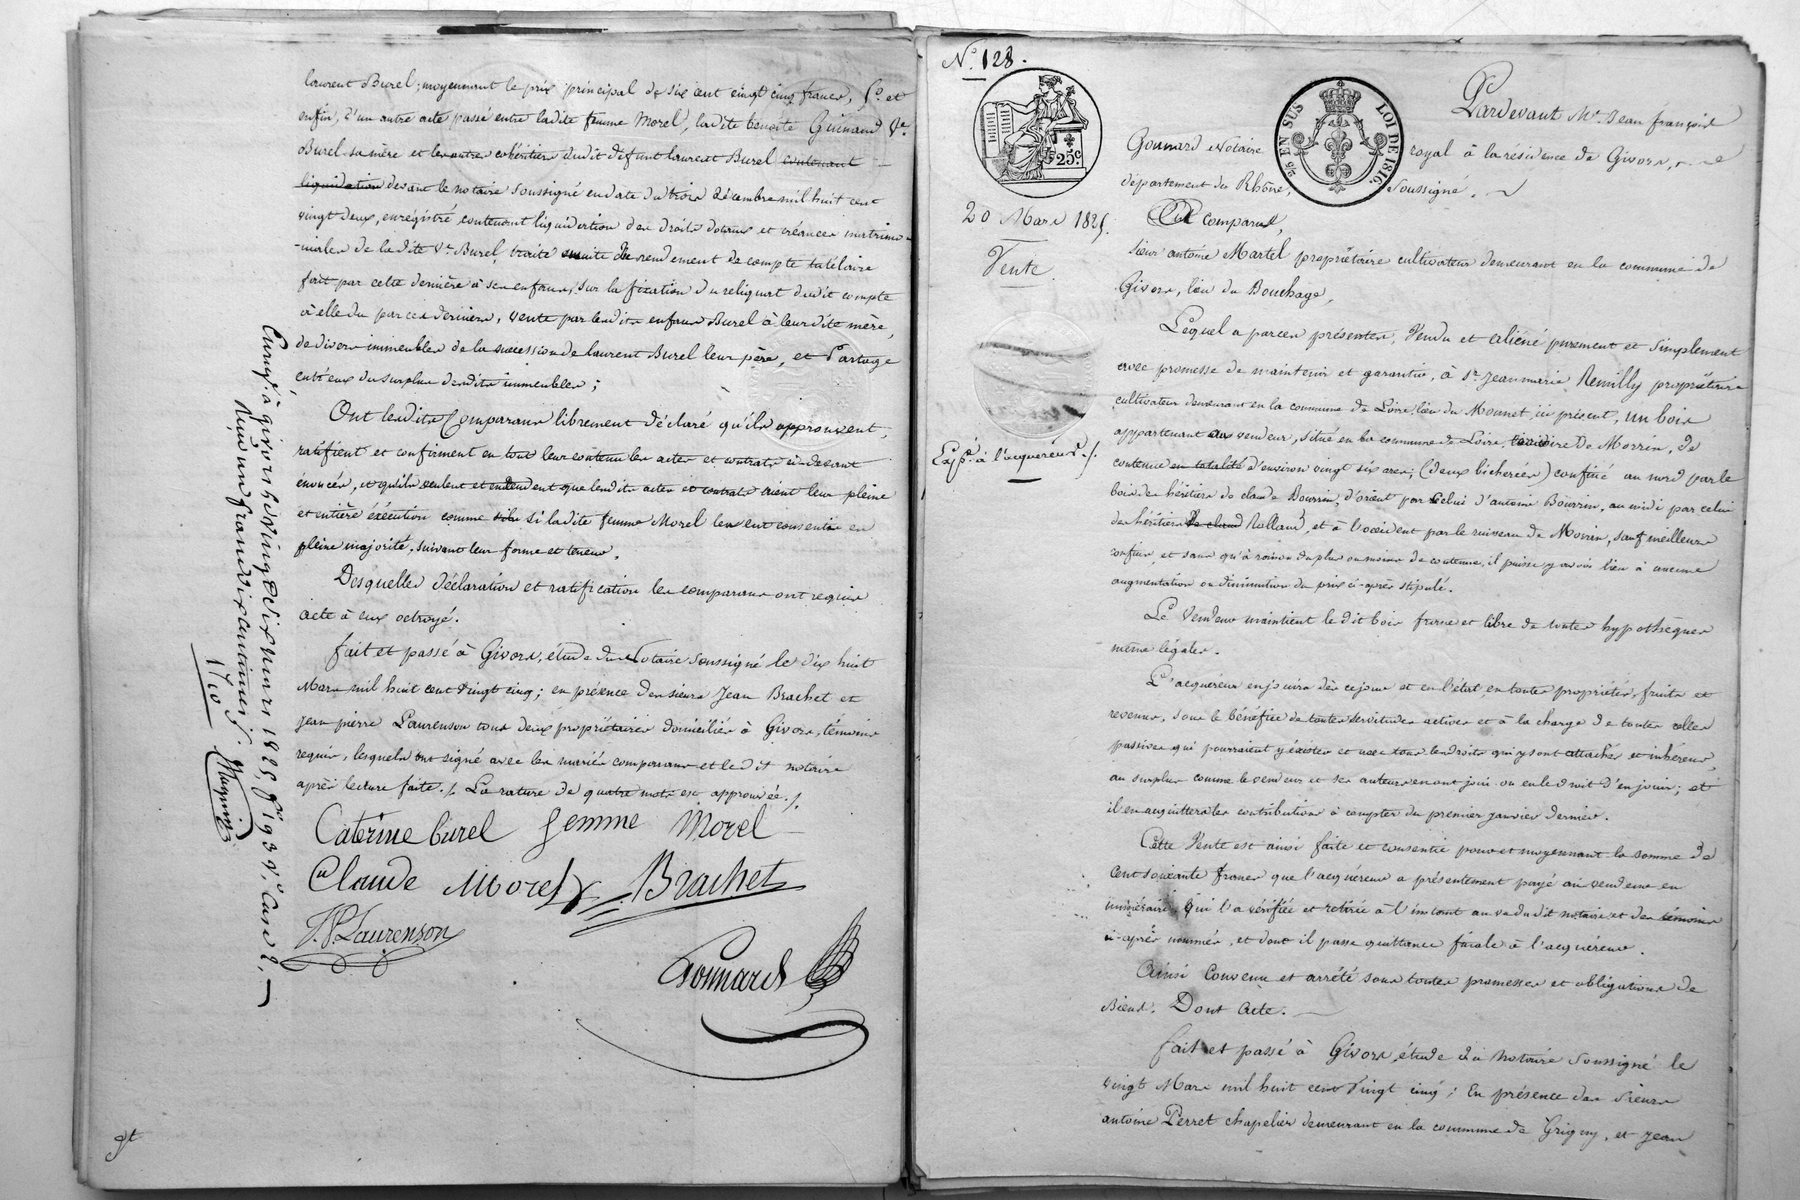 laurent Burel; moyennant le prix principal de six cent vingt cinq francs, 5°. et
enfin, d'un autre acte passé entre ladite femme Morel, ladite benoite Guinand Ve.
Burel sa mère et les autres cohéritiers dudit défunt laurent Burel contenant
liquidation devant le notaire soussigné en date du trois décembre mil huit cent
vingt deux, enregistré contenant liquidation des droits dotaux et créances matrimo
-niales de la dite Ve. Burel, traité ensuite de rendement de compte tutélaire
fait par cette dernière à ses enfans, sur la fixation du reliquat dudit compte
à elle du par ces derniers, vente par lesdits enfans Burel à leur dite mère,
de divers immeubles de la succession de laurent Burel leur père, et Partage
entr'eux du surplus desdits immeubles;
Ont lesdits Comparans librement déclaré qu'ils approuvent,
ratifient et confirment en tout leur contenu les actes et contrats ci-devant
énoncés, et qu'ils veulent et entendent que lesdits actes et contrats aient leur pleine
et entière éxécution comme si la dite femme Morel les eut consentis en
pleine majorité, suivant leur forme et teneur.
Desquelles déclaration et ratification les comparans ont requis
acte à eux octroyé.
fait et passé à Givors, étude du Notaire soussigné le dix huit
Mars mil huit cent vingt cinq; en présence des sieurs Jean Brachet et
jean pierre Laurenson tous deux propriétaires domiciliés à Givors, témoins
requis, lesquels ont signé avec les mariés comparans et le dit notaire
après lecture faite./. La rature de quatre mots est approuvée./.
Caterine burel femme Morel
Claude Morel Brachet
J. P. Laurenson
Gonnard
Enreg. à givors le vingt six mars 1825, f° 193 v° Case 2.
Reçu un franc dix centimes
1/10
gt
N°. 128.
25c
25 EN SUS LOI DE 1816.
20 Mars 1825.
Vente
Exp. à l'acquéreur./.
Pardevant Me. Jean françois
Gonnard Notaire royal à la résidence de Givors,
département du Rhône, Soussigné.
Est comparu,
Sieur antoine Martel propriétaire cultivateur demeurant en la commune de
Givors, lieu du Bouchage,
Lequel a par ces présentes, Vendu et aliéné purement et simplement
avec promesse de maintenir et garantir, à Sr. Jean marie Remilly propriétaire
cultivateur demeurant en la commune de Loire, lieu du Monnet ici présent, un bois
appartenant au vendeur, situé en la commune de Loire territoire De Morrin, de
contenue en totalité d'environ vingt six ares, (deux bicherées) confiné au nord par le
bois des héritiers de claude Bourrin, d'orient par celui d'antoine Bourrin, au midi par celui
des héritiers de claud Rolland, et à l'occident par le ruisseau de Morrin, sauf meilleurs
confins, et sans qu'à raison du plus ou moins de contenue, il puisse y avoir lieu à aucune
augmentation ou diminution du prix ci-après stipulé.
Le vendeur maintient le dit bois franc et libre de toutes hypothèques
même légales.
L'acquéreur en jouira dès ce jour et en l'état en toutes propriétés, fruits et
revenus, sous le bénéfice de toutes servitudes actives et à la charge de toutes celles
passives qui pourraient y éxister et avec tous les droits qui y sont attachés et inhérens,
au surplus comme le vendeur et ses auteurs en ont joui ou eu le droit d'en jouir; et
il en acquittera les contributions à compter du premier janvier dernier.
Cette Vente est ainsi faite et consentie pour et moyennant la somme de
cent soixante francs que l'acquéreur a présentement payé au vendeur en
numéraire, qui l'a vérifiée et retirée à l'instant au vu du dit notaire et des témoins
ci-après nommés, et dont il passe quittance finale à l'acquéreur.
Ainsi Convenu et arrêté sous toutes promesses et obligations de
Biens. Dont acte.
fait et passé à Givors, étude du Notaire soussigné le
vingt Mars mil huit cent Vingt cinq; En présence des Sieurs
antoine Perret chapelier demeurant en la commune de Grigny, et Jean